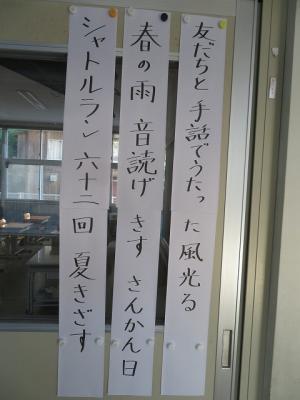 友だちと手話でうたった風光る
春の雨音読げきすさんかん日
シャトルラン六十二回夏きざす